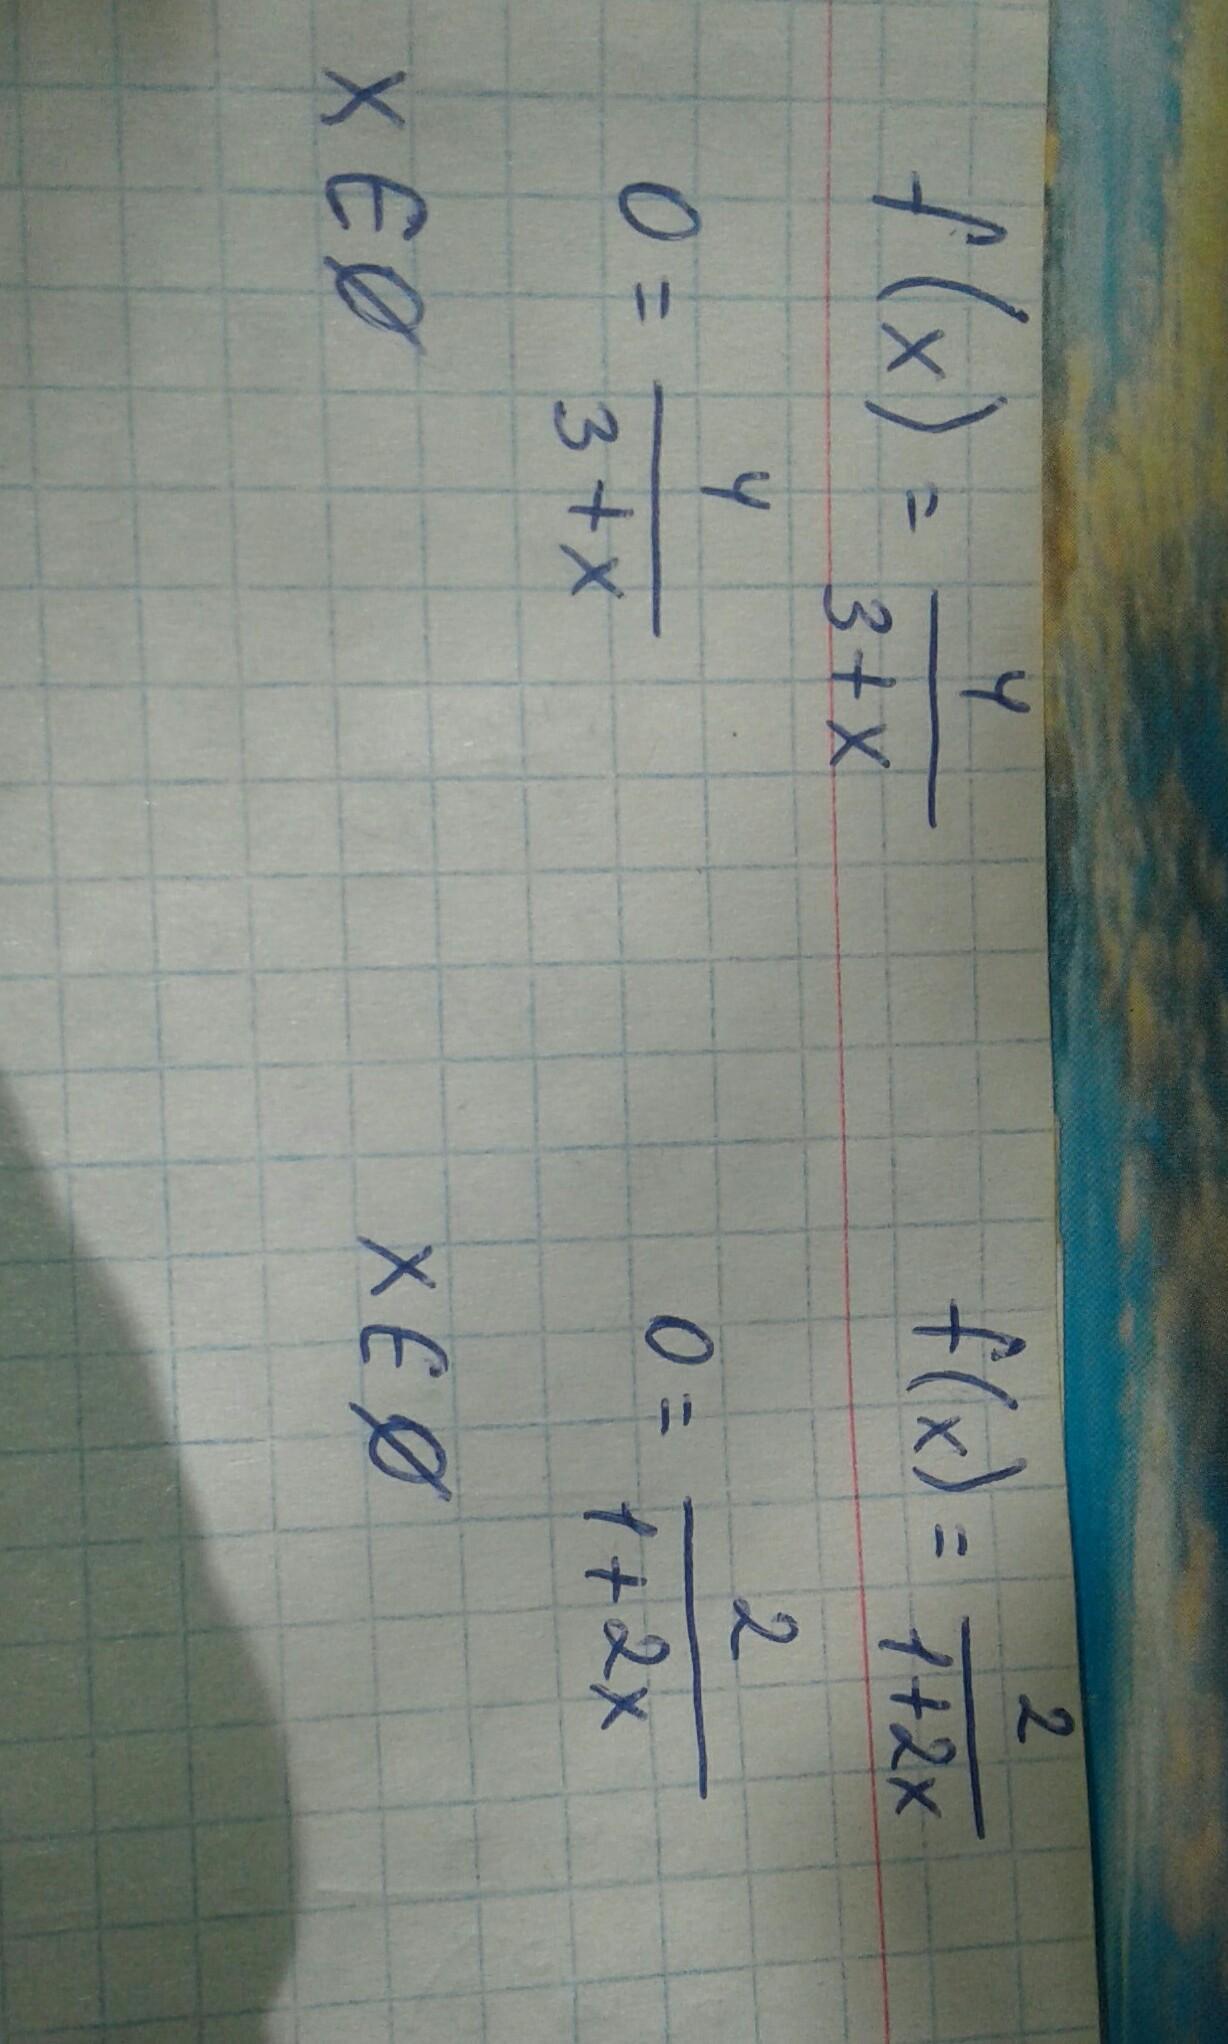 f(x) = 4/(3+x)
0 = 4/(3+x)
x ∈ ∅
f(x) = 2/(1+2x)
0 = 2/(1+2x)
x ∈ ∅